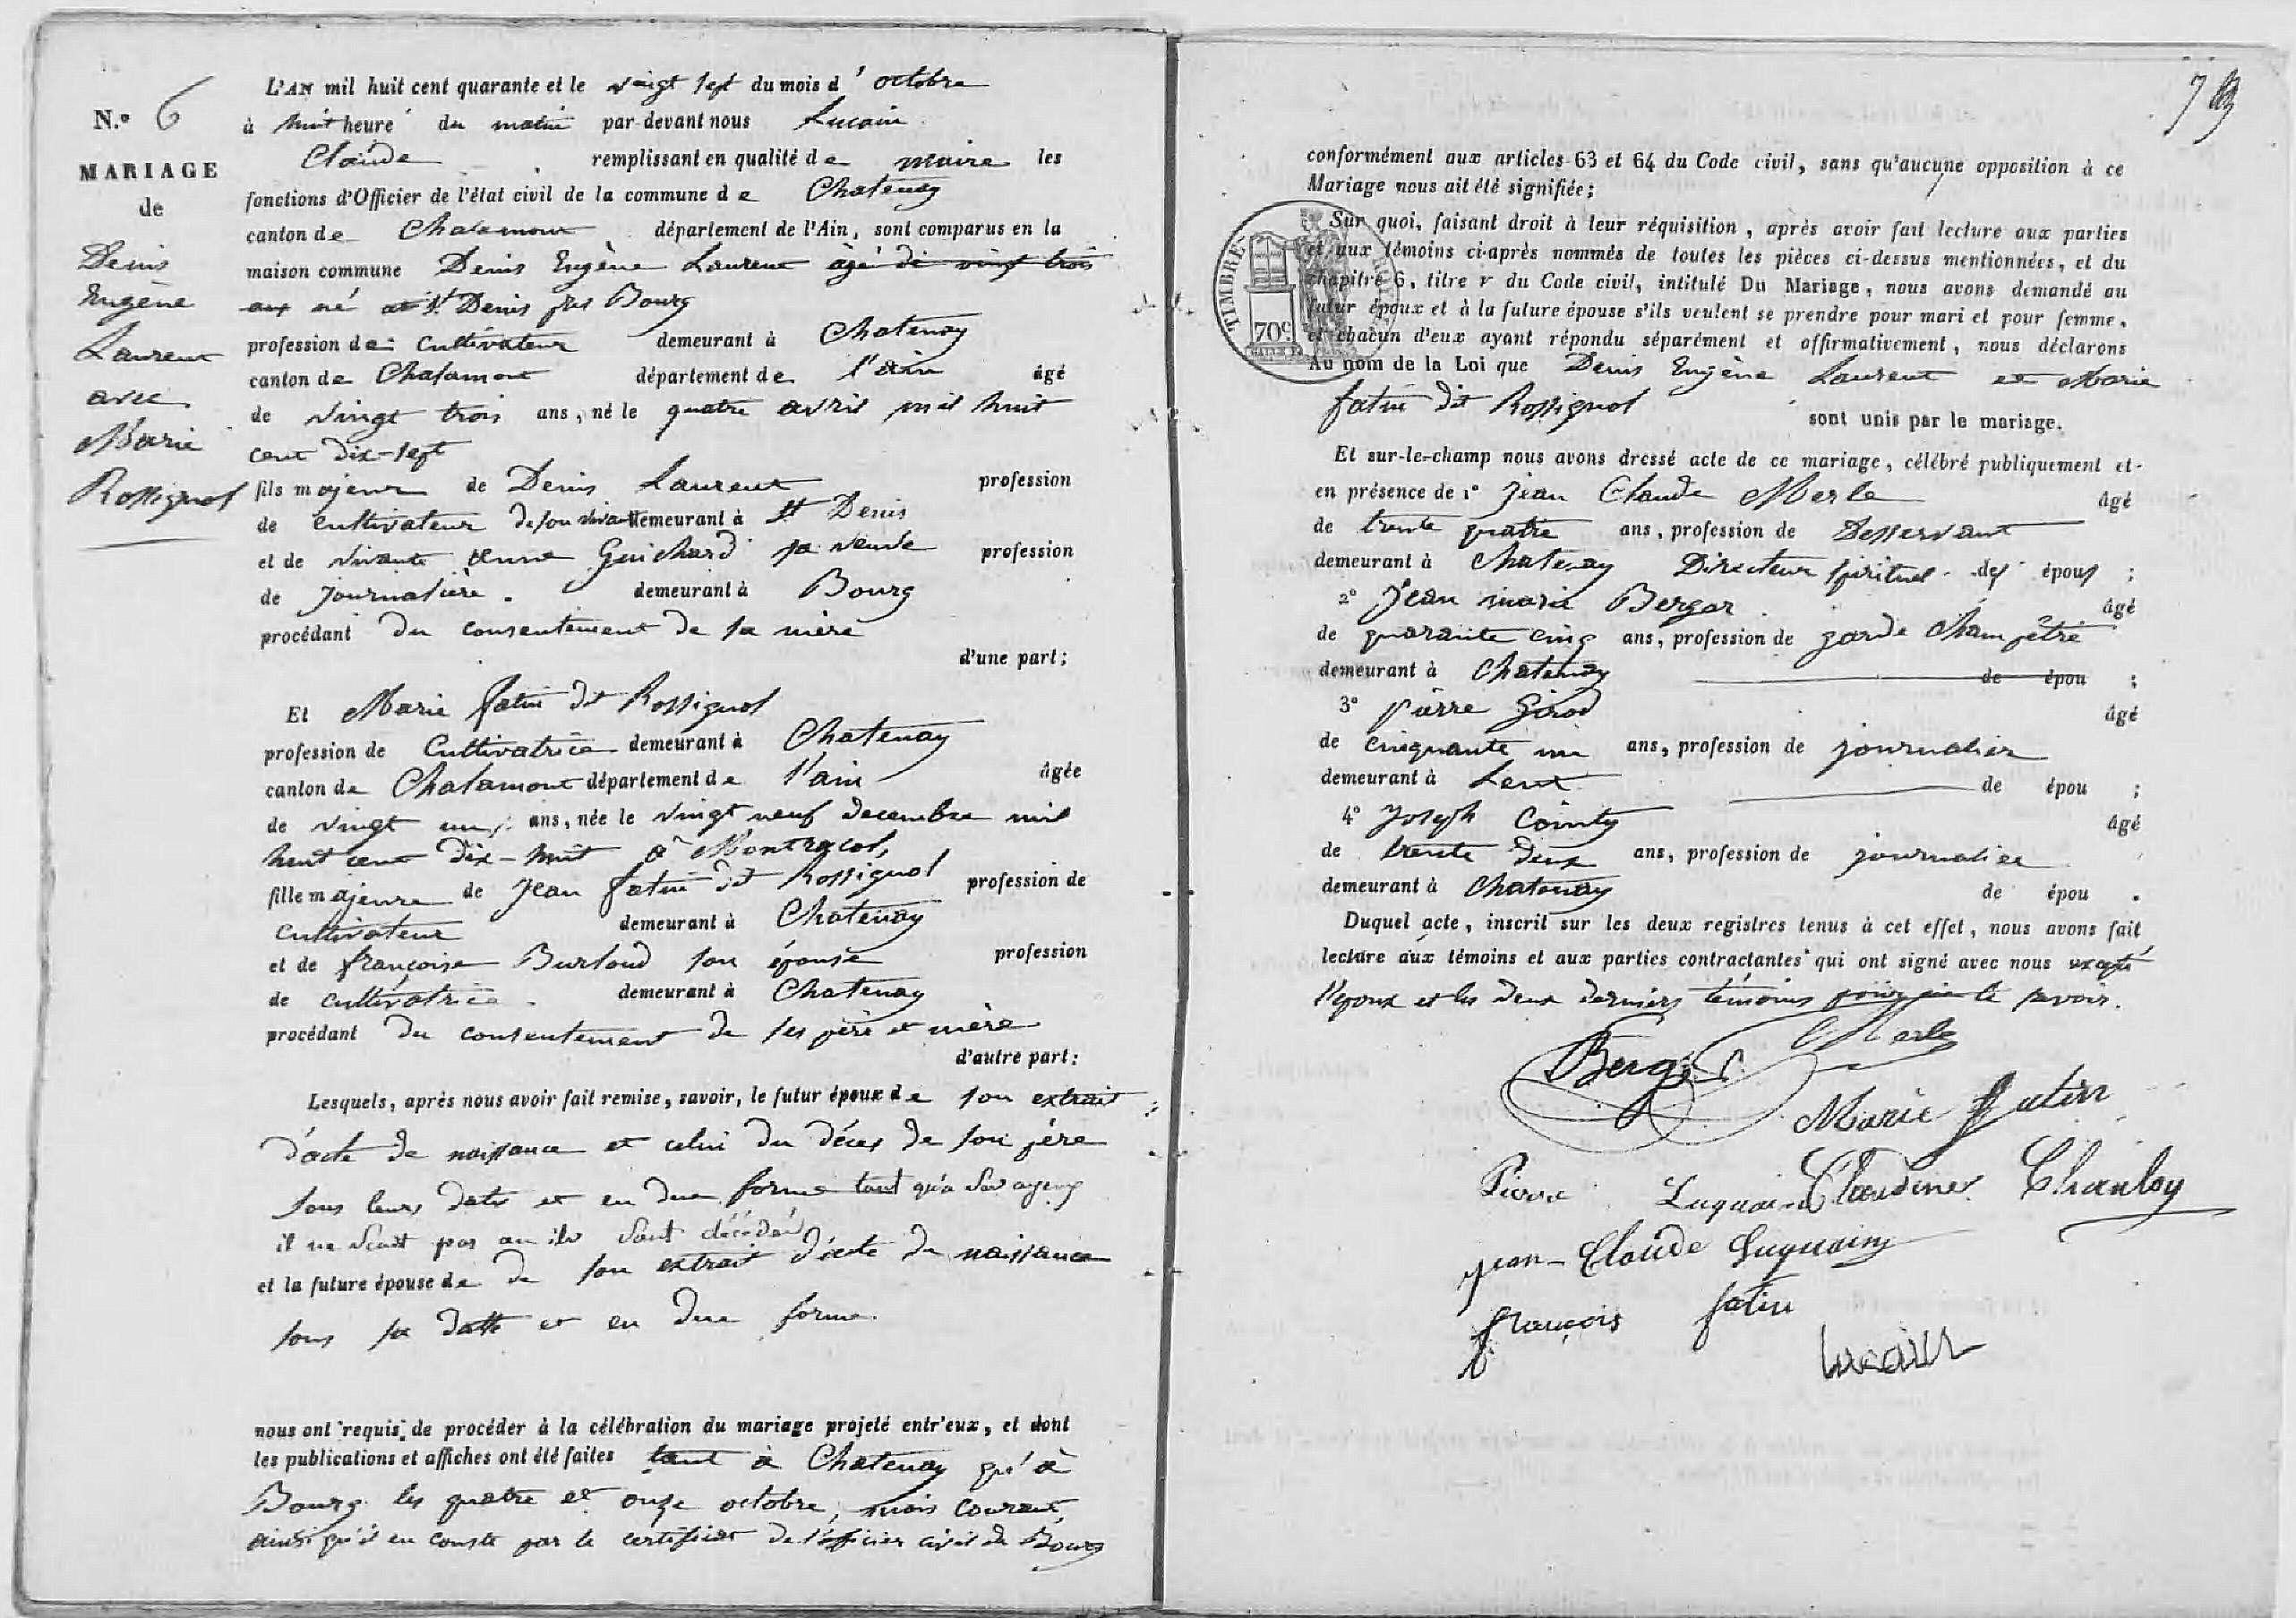 N.º 6
MARIAGE
de
Denis
Eugène
Laurent
avec
Marie
Rossignol
L'AN mil huit cent quarante et le vingt sept du mois d'octobre
à huit heure du matin par-devant nous Lucain
Claude remplissant en qualité de maire les
fonctions d'Officier de l'état civil de la commune de Chatenay
canton de Chalamont département de l'Ain, sont comparus en la
maison commune Denis Eugène Laurent âgé de vingt trois
ans né à St Denis près Bourg
profession de cultivateur demeurant à Chatenay
canton de Chalamont département de l'ain âgé
de vingt trois ans, né le quatre avril mil huit
cent dix-sept
fils majeur de Denis Laurent profession
de cultivateur de son vivant demeurant à St Denis
et de vivante anne Guichard sa veuve profession
de journalière. demeurant à Bourg
procédant du consentement de sa mère
d'une part;
Et Marie fatin dit Rossignol
profession de Cultivatrice demeurant à Chatenay
canton de Chalamont département de l'ain âgée
de vingt un ans, née le vingt neuf decembre mil
huit cent dix-huit à Montracol,
fille majeure de Jean fatin dit Rossignol profession de
cultivateur demeurant à Chatenay
et de françoise Burtoud son épouse profession
de cultivatrice. demeurant à Chatenay
procédant du consentement de ses père et mère
d'autre part:
Lesquels, après nous avoir fait remise, savoir, le futur époux de son extrait
d'acte de naissance et celui du décès de son père
sous leurs dates et en due forme tant qu'a ses ayeux
il ne scait pas ou ils sont décédés
et la future épouse de de son extrait d'acte de naissance
sous sa datte et en due forme.
nous ont requis de procéder à la célébration du mariage projeté entr'eux, et dont
les publications et affiches ont été faites tant à Chatenay qu'à
Bourg les quatre et onze octobre, mois courant,
ainsi qu'il en conste par le certificat de l'officier civil de Bourg
conformément aux articles 63 et 64 du Code civil, sans qu'aucune opposition à ce
Mariage nous ait été signifiée;
Sur quoi, faisant droit à leur réquisition, après avoir fait lecture aux parties
et aux témoins ci-après nommés de toutes les pièces ci-dessus mentionnées, et du
chapitre 6, titre v du Code civil, intitulé Du Mariage, nous avons demandé au
futur époux et à la future épouse s'ils veulent se prendre pour mari et pour femme,
et chacun d'eux ayant répondu séparément et affirmativement, nous déclarons
Au nom de la Loi que Denis Eugène Laurent et Marie
fatin dit Rossignol sont unis par le mariage.
TIMBRE
70c
Et sur-le-champ nous avons dressé acte de ce mariage, célébré publiquement et
en présence de 1º Jean Claude Merle âgé
de trente quatre ans, profession de Desservant
demeurant à Chatenay Directeur spirituel des époux;
2º Jean marie Berger âgé
de quarante cinq ans, profession de garde champêtre
demeurant à Chatenay de épou;
3º pierre Girod âgé
de cinquante un ans, profession de journalier
demeurant à Lent de épou;
4º Joseph Cointy âgé
de trente deux ans, profession de journalier
demeurant à Chatenay de épou.
Duquel acte, inscrit sur les deux registres tenus à cet effet, nous avons fait
lecture aux témoins et aux parties contractantes qui ont signé avec nous excepté
l'époux et les deux derniers témoins le savoir.
Merle
Berger
Marie fatin
Pierre Luquain Claudine Chanloy
Jean-Claude Luquain
françois fatin
Lucain